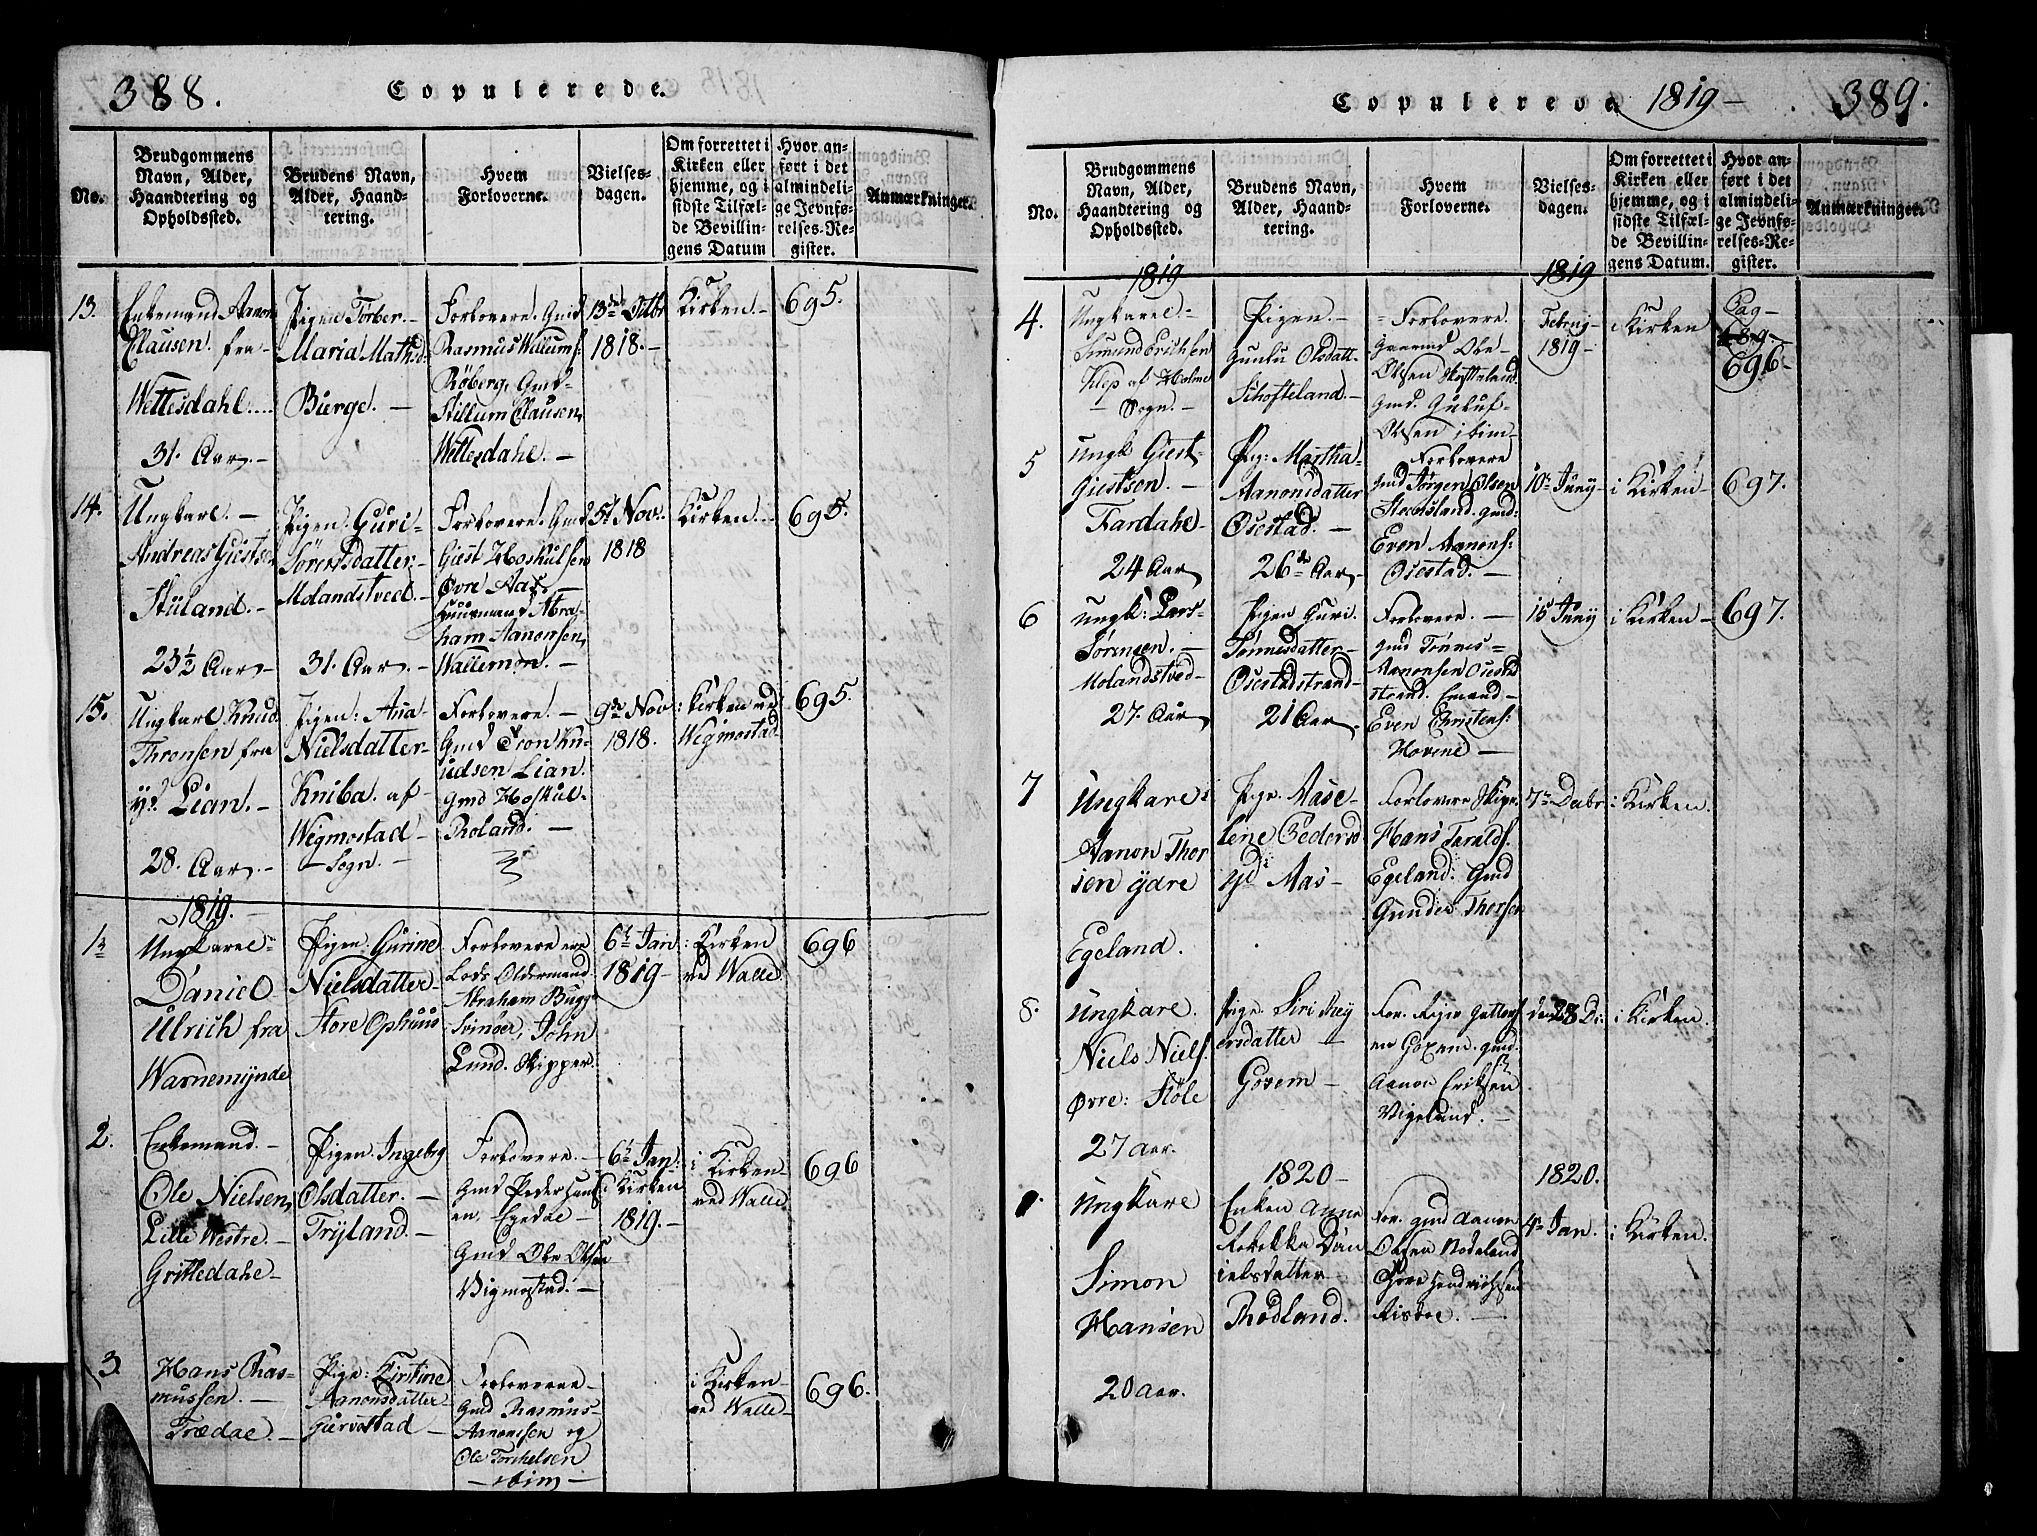 388.
Copulerede.
No.
Brudgommens
Navn, Alder,
Haandtering og
Opholdssted.
Brudens Navn,
Alder, Haand-
tering.
Hvem
Forloverne.
Vielses-
dagen.
Om forrettet i
Kirken eller
hjemme, og i
sidste Tilfæl-
de Bevillin-
gens Datum
Hvor an-
ført i det
almindeli-
ge Jevnfø-
relses-Re-
gister.
Anmærkninger.
13.
Enkemand Aanon
Clausen fra
Wettesdahl
31. Aar.
Pigen Torber
Maria Mathisd
Bierge.
Forlovere Gmd
Rasmus Willums:
Röberg, Gmd
Stillum Clausen,
Wettesdahl.
13de Octbr
1818.
Kirken.
695.
14.
Ungkarl.
Andreas Giertsen
Stüland.
23½ Aar
Pigen. Guri
Sörensdatter
Molandsved
31. Aar.
Forlovere. Gmd
Giest Hoskulsen
Øvre Aas
Huusmand Abra-
ham Aanonsen,
Wallemon.
5t Nov.
1818
Kirken.
695.
15.
Ungkarl Knud
Thronsen fra
y. Lian.
28. Aar.
Pigen: Ana
Nielsdatter
Kniba. af
Wegmostad
Sogn.
Forlovere.
Gmd Tron Kn-
udsen Lian.
Gmd Hoskul
Roland.
9de Nov
1818.
i Kirken ved
Wegmostad.
695.
1819.
1
Ungkarl
Daniel
Ulrich fra
Warnemynde
Pigen: Gurine
Nielsdatter
Store Ophuus
Forlovere ere
Lods Oldermand
Abraham Bugge
Svinöer, John
Lund. Skipper.
6t Jan
1819
i Kirken
ved Walle
696
2.
Enkemand.
Ole Nielsen,
Lille Westre.
Grittedahl
Pigen Ingebor
Olsdatter.
Tryland.
Forlovere.
Gmd Peder Hans
en, Egedal
Gmd Ole Olsen
Vigmostad.
6t Jan:
Kirken
1819.
i Kirken
ved Walle
696
3.
Hans Ras-
mussen.
Trædal.
Pige: Kirstine
Aanonsdatter
Giervestad
Forlovere
Gmd Rasmus
Aanonsen og
Ole Torkelsen
ibim
i Kirken
ved Walle
696.
Copulerede
1819
389.
No.
Brudgommens
Navn, Alder,
Haandtering og
Opholdssted.
Brudens Navn,
Alder, Haand-
tering.
Hvem
Forloverne.
Vielses-
dagen.
Om forrettet i
Kirken eller
hjemme, og i
sidste Tilfæl-
de Bevillin-
gens Datum.
Hvor an-
ført i det
almindeli-
ge Jevnfø-
relses-Re-
gister.
Anmærkninger.
1819
1819
4.
Ungkarl
Simund Erichsen
Klep af Holme
Sogn.
Pigen.
Gunlu Olsdatt
Schofteland.
Forlovere.
Ole
Olsen Skofteland.
Gmd. Guluf
Olsen ibim
1819
i Kirken
Pag
689
696
5
Ungk Giest
Giestsen.
Fardahl
24 Aar
Pig: Martha
Aanonsdatter
Osestad.
26de Aar
Forlovere
Gmd Jörgen Olsen
Gmd:
Even Aanons:
Osestad.
10t Juny
i Kirken
697.
6
Ungk: Lars
Sörensen.
Molandsved
27. Aar
Pigen Guri.
Tönnesdatter
Osestadstrand
21 Aar
Forlovere.
Gmd Tönnes
Aanonsen Osestad
strand.
Even Christens:
Hovene
15 Juny
i Kirken
697.
7
Ungkarl
Aanon Thor
sen ydre
Egeland.
Pige. Aase
Lene Pedersd
yd: Aas
Forlovere Skip.
Hans Taralds.
Egeland. Gmd
Gunder Thorsen
7de Decbr
i Kirken.
8.
Ungkarl.
Niels Niels.
Övre: Stöle
27 Aar.
Pige Siri Rey
ersdatter
Goxem
For. Rejer Guttorms
en Goxem. Gmd.
Aanon Eriksen
Vigeland.
den 28 De:
i Kirken.
1820
1820.
Ungkarl
Simon
Hansen
20 Aar.
Enken Anna
Rebekka Dan
ielsdatter
Rödland.
For. Gmd Aanon
Olsen Rödland
Hendrichsen
Risböe.
4de Jan.
i Kirken.